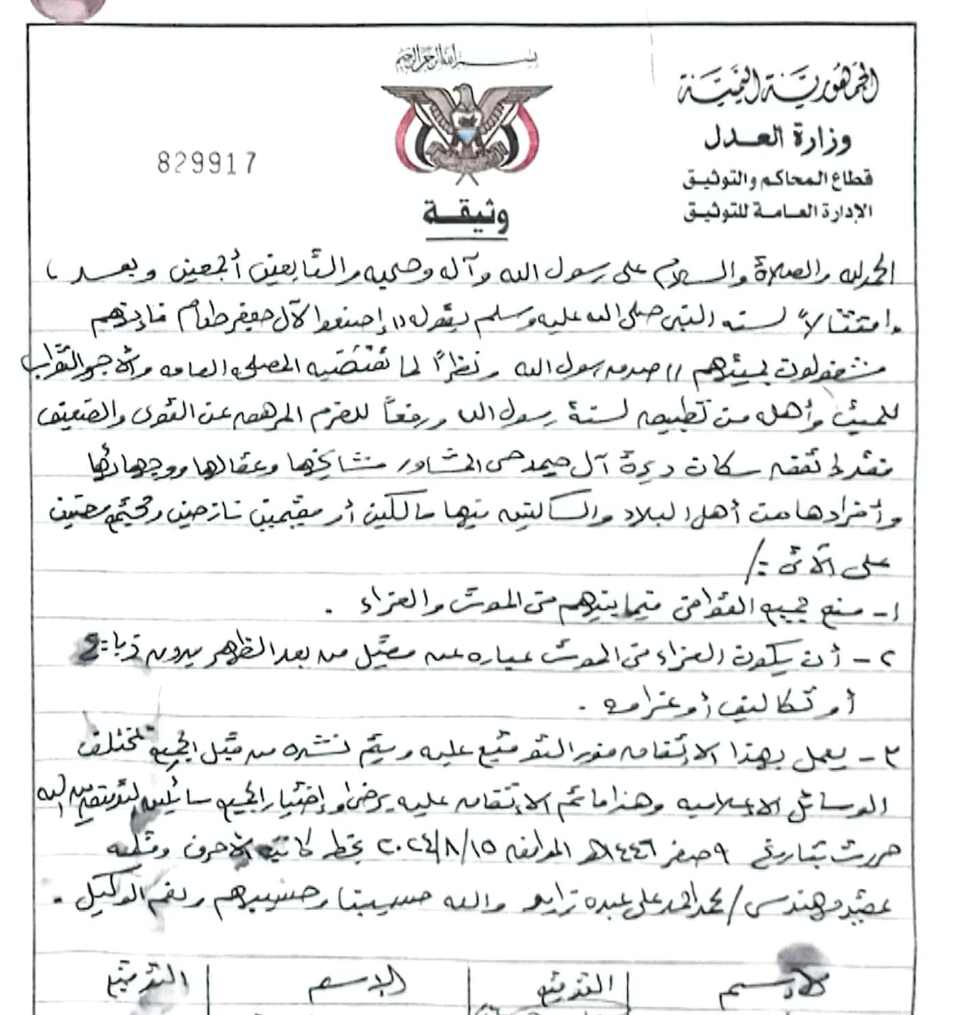 بسم الله الرحمن الرحيم
الجمهورية اليمنية
وزارة العدل
قطاع المحاكم والتوثيق
الإدارة العامة للتوثيق
829917
وثيقة
الحمدلله والصلاة والسلام على رسول الله وآله وصحبه والتابعين أجمعين وبعد ،
إمتثالاً لسنه النبي صلى الله عليه وسلم بقوله (( إصنعوا لآل جعفر طعام فإنهم
مشغولون بميتهم )) صدق رسول الله ونظراً لما تقتضيه المصلحه العامه والأجر والثواب
للميت وأهله من تطبيق لسنة رسول الله ورفعاً للغرم المرهق عن القوي والضعيف
فقد اتفق سكان ديرة آل حميد حي المشاور مشائخها وعقالها ووجهائها
وأفرادها من أهل البلاد والساكنين فيها مالكين أو مقيمين نازحين ومخيم
على الآتي :/
١- منع جميع القوامي فيما بينهم في الموت والعزاء .
٢- أن يكون العزاء في الموت عباره عن مقيل من بعد الظهر بدون ذبائح
أو تكاليف أو غرامه .
٣- يعمل بهذا الإتفاق فور التوقيع عليه ويتم نشره من قبل الجميع بمختلف
الوسائل الإعلاميه وهذا ماتم الإتفاق عليه برضى وإختيار الجميع سائلين التوفيق من الله
حررت بتاريخ ٩ صفر ١٤٤٦هـ الموافق ٢٠٢٤/٨/١٥ بخط كاتب الأحرف ومثليه
عقيد مهندس / محمد احمد علي عبده زايد والله حسيبنا وحسيبهم ونعم الوكيل .
الإسم التوقيع الإسم التوقيع